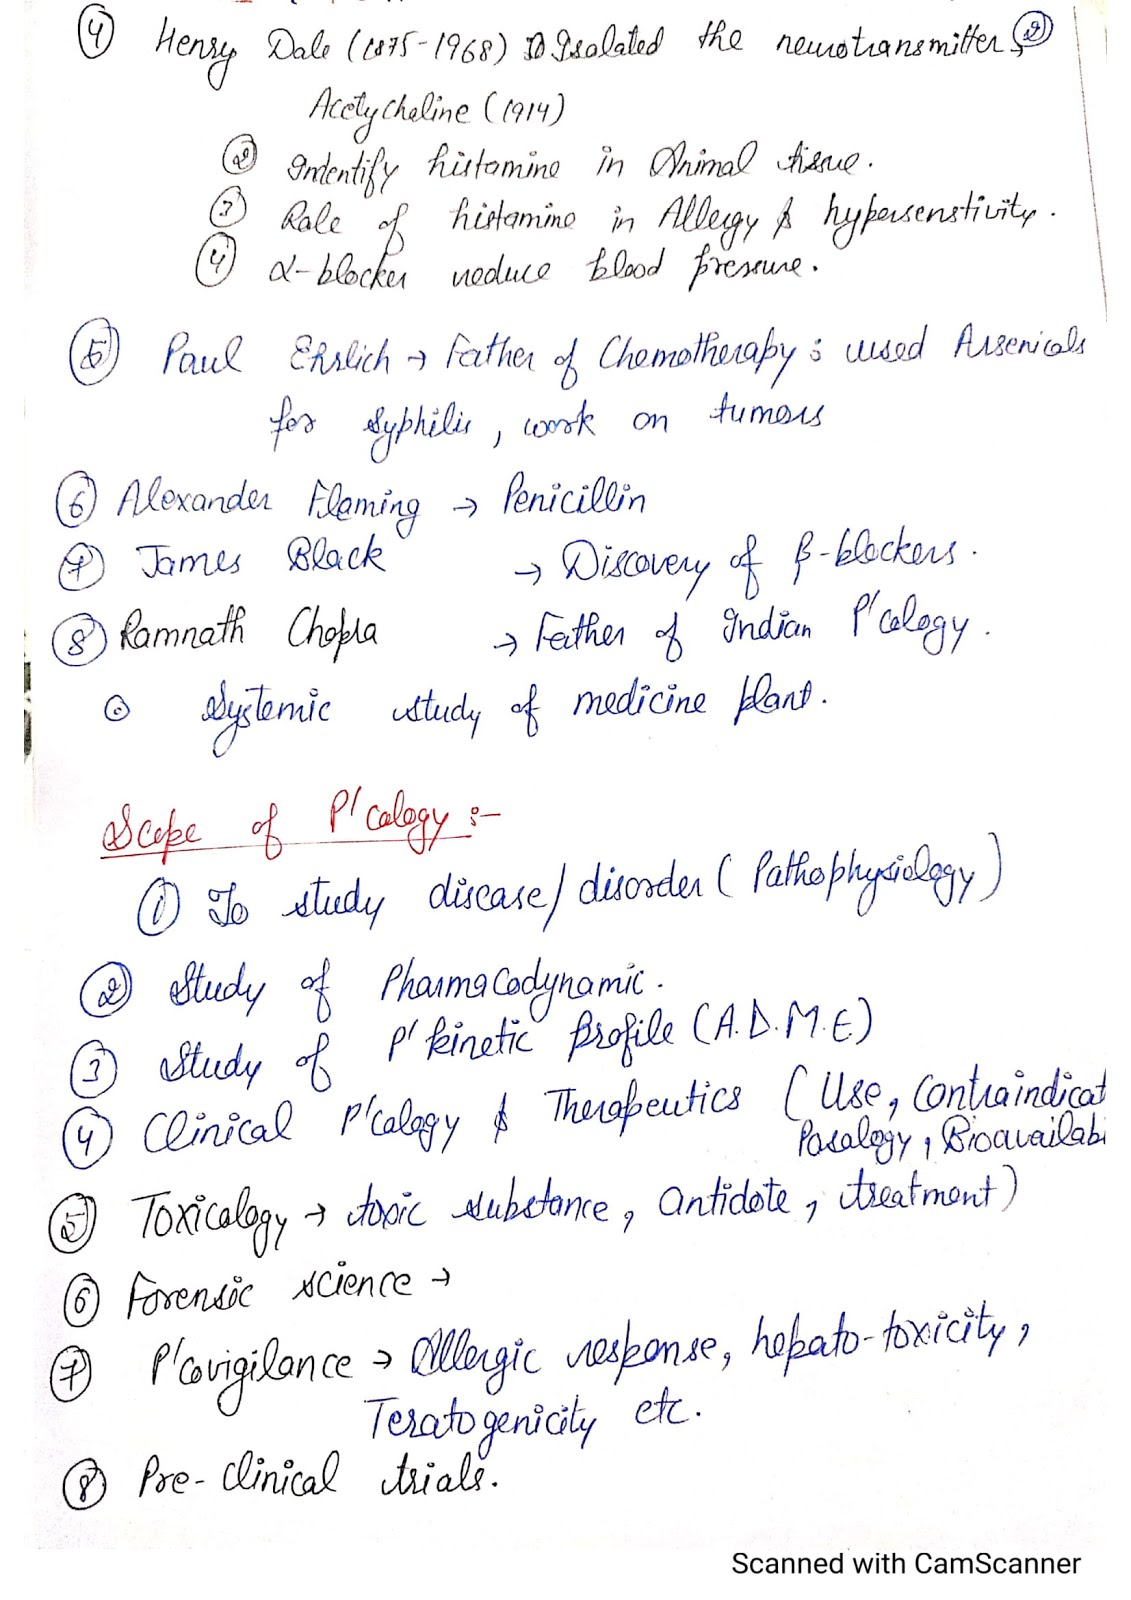 ④ Henry Dale (1875-1968) ① Isolated the neurotransmitter, ②
Acetycholine (1914)
② Indentify histamine in Animal tissue.
③ Role of histamine in Allergy & hypersenstivity.
④ α-blocker reduce blood pressure.
⑤ Paul Ehrlich → Father of Chemotherapy : used Arsenicals
for syphilis, work on tumors
⑥ Alexander Fleming → Penicillin
⑦ James Black → Discovery of β-blockers.
⑧ Ramnath Chopra → Father of Indian P'cology.
⊙ Systemic study of medicine plant.
Scope of P'cology :-
① To study disease/disorder (Pathophysiology)
② Study of Pharmacodynamic.
③ Study of P'kinetic Profile (A.D.M.E)
④ Clinical P'cology & Therapeutics (Use, Contraindicat
Posology, Bioavailabi
⑤ Toxicology → toxic substance, antidote, treatment)
⑥ Forensic science →
⑦ P'covigilance → Allergic response, hepato-toxicity,
Teratogenicity etc.
⑧ Pre-clinical trials.
Scanned with CamScanner